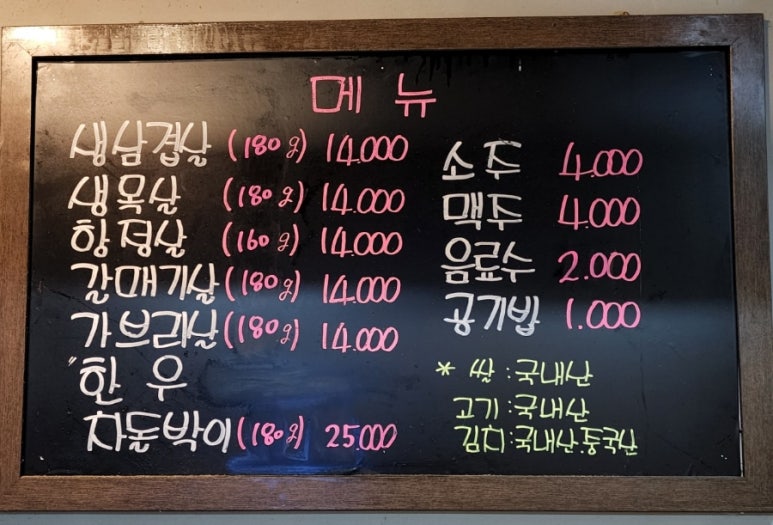 메뉴
생삼겹살 (180g) 14.000
생목살 (180g) 14.000
항정살 (160g) 14.000
갈매기살 (180g) 14.000
가브리살 (180g) 14.000
"한우
차돌박이 (180g) 25.000
소주 4.000
맥주 4.000
음료수 2.000
공기밥 1.000
* 쌀:국내산
고기:국내산
김치:국내산.중국산